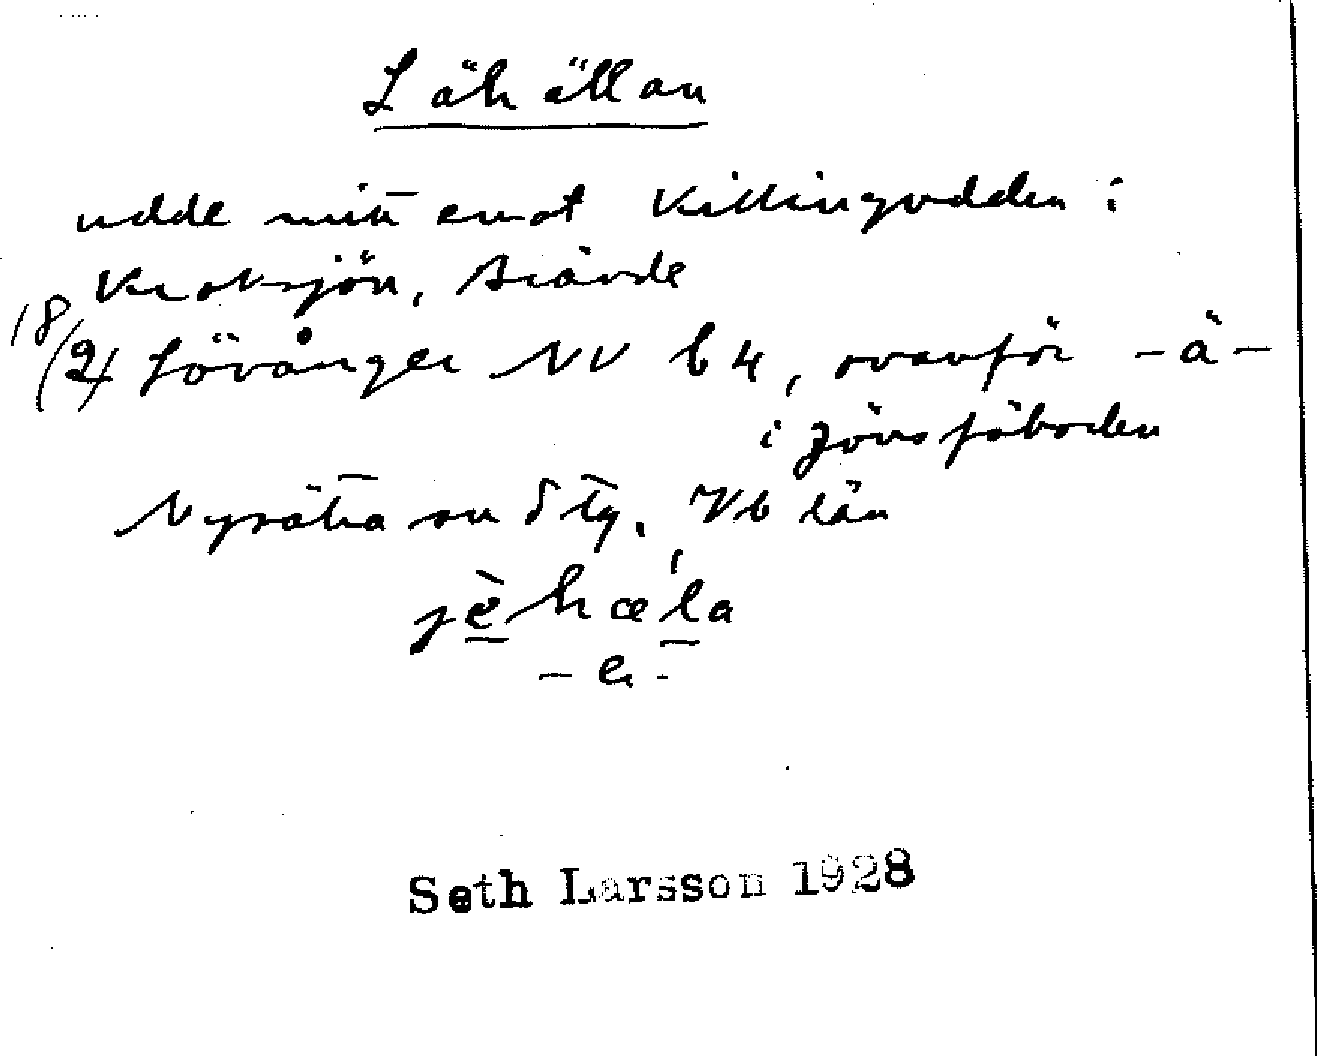 Lähällan
udde mitt emot Killingudden i
Kroksjön, Siäude
18/(2) Lövånger NV b 4, ovanför –ä–
i Jönsfäboden
Nysätra sn Stg. Vb län
jèhæ'la
– e –
Seth Larsson 1928